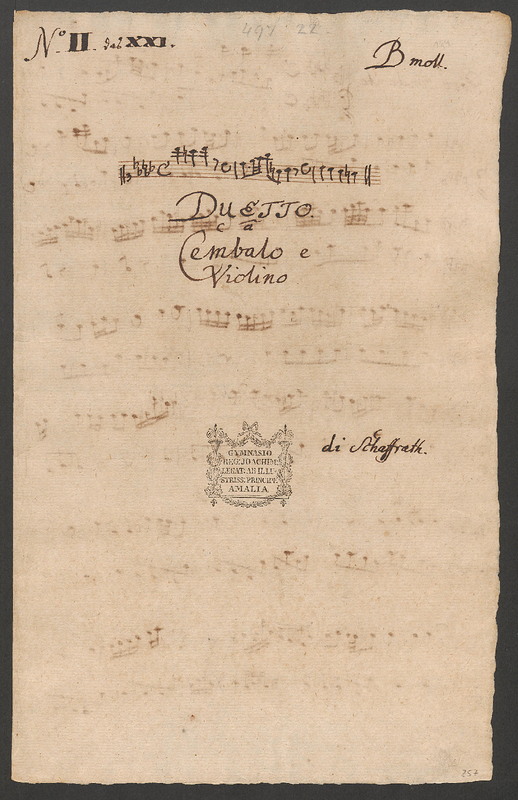 497 22
N.º II. del XXI.
B moll.
DuETTO.
a
Cembalo e
Violino
di Schaffrath.
GYMNASIO
REG. JOACHIM.
LEGAT. AB ILLU
STRISS. PRINCIPE
AMALIA
257